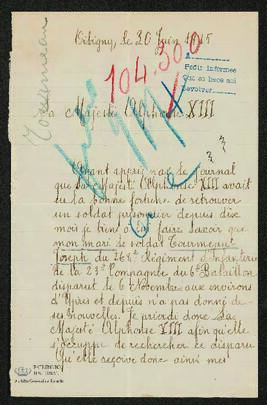 Tibigny, le 20 Juin 1915
104.300
Pedir informes
que se crea sea
devolver
Tournemeau
a Majesté Alphonse XIII
Ayant appris par le journal
que Sa Majesté Alphonse XIII avait
eu la bonne fortune de retrouver
un soldat prisonnier depuis dix
mois je viens lui faire savoir que
mon mari le soldat Tournemeau
Joseph du 268e Régiment d'Infanterie
de la 23e Compagnie du 6e Bataillon
disparut le 6 Novembre aux environs
d'Ypres et depuis n'a pas donné de
ses nouvelles. Je prierai donc Sa
Majesté Alphonse XIII afin qu'elle
s'occupe de rechercher ce disparu
Qu'elle reçoive donc ainsi mes